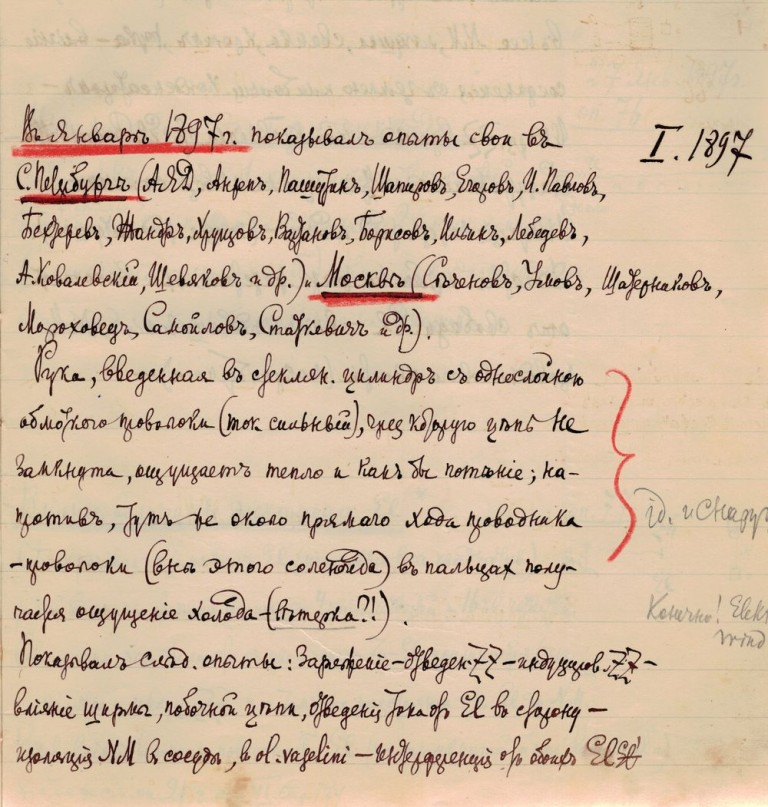 Въ январѣ 1897 г. показывалъ опыты свои въ
I. 1897
С.Петербургѣ (А.Я.Д, Анрепъ, Пашутинъ, Шапировъ, Егоровъ, И. Павловъ,
Бехтеревъ, Жандръ, Хрущовъ, Вартановъ, Борисовъ, Ильинъ, Лебедевъ,
А. Ковалевскій, Шевяковъ и др.) и Москвѣ (Сѣченовъ, Умовъ, Шатерниковъ,
Мороховецъ, Самойловъ, Станкевичъ и др).
Рука, введенная въ стеклян. цилиндръ съ однослойною
обмоткою проволоки (ток сильный), чрез которую цѣпь не
замкнута, ощущаетъ тепло и какъ бы потѣніе; на-
противъ, тутъ же около прямаго хода проводника
-проволоки (внѣ этого соленоида) въ пальцах полу-
чается ощущеніе холода-(вѣтерка?!).
id. и снару
Конечно! Elekt
wind
Показывалъ слѣд. опыты: Заряженіе-отведен. - индукціов. -
вліяніе ширмы, побочной цѣпи, отведенія тока отъ El въ сторону -
изоляція NM в сосудѣ, в ol. vaselini - интерференція отъ обоихъ El